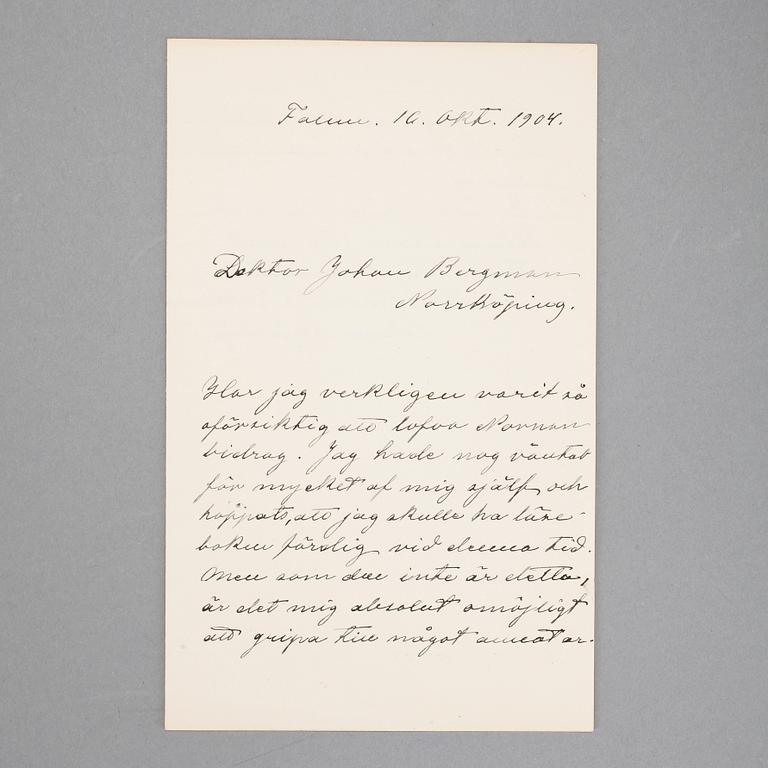 Falun. 10. Okt. 1904.
Doktor Johan Bergman
Norrköping.
Har jag verkligen varit så
oförsiktig att lofva Nornan
bidrag. Jag hade nog väntat
för mycket af mig själf och
hoppats, att jag skulle ha läse-
boken färdig vid denna tid.
Men som den inte är detta,
är det mig absolut omöjligt
att gripa till något annat ar-